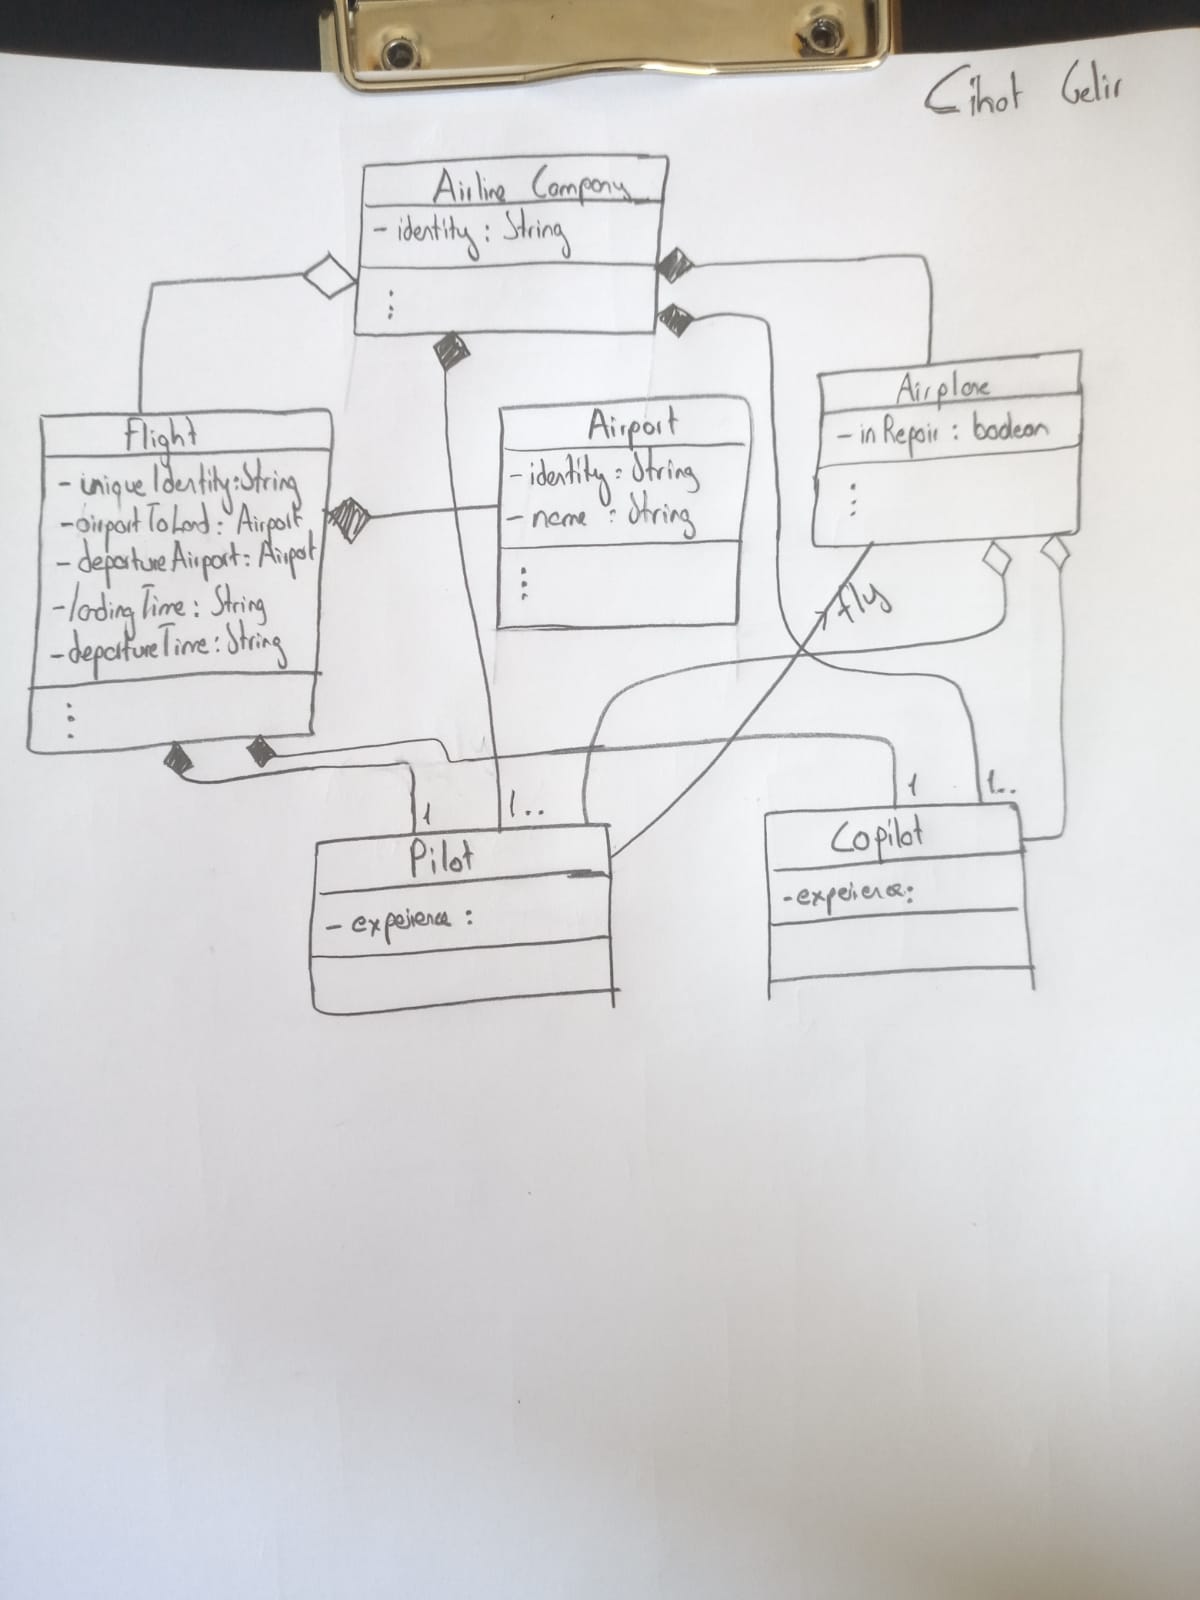 Cihat Gelir
Airline Company
- identity : String
⋮
Flight
- unique Identity:String
- airportToLand : Airport
- departure Airport : Airport
- landing Time : String
- departureTime : String
⋮
Airport
- identity : String
- name : String
⋮
Airplane
- in Repair : boolean
⋮
fly
1
1..
1
1..
Pilot
- experience :
Copilot
- experience: